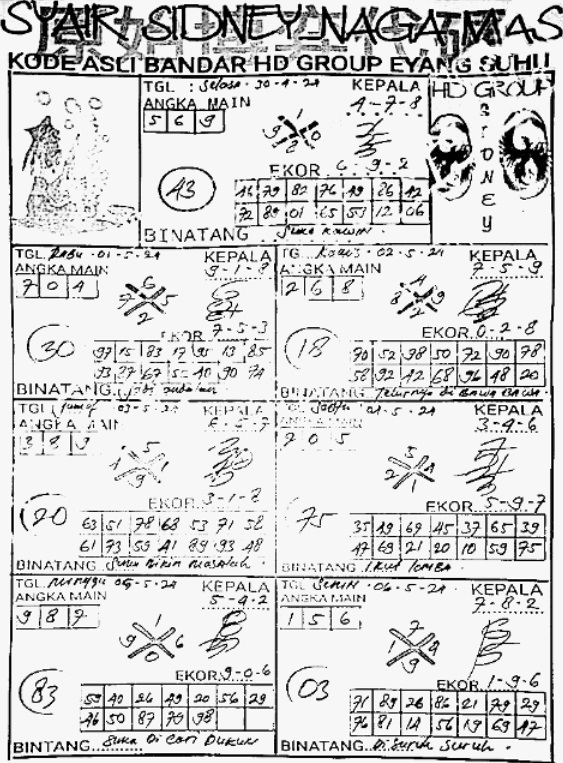 SYAIR SIDNEY NAGA MAS
KODE ASLI BANDAR HD GROUP EYANG SUHU
TGL : Selasa · 30-4-24 KEPALA
ANGKA MAIN 4-7-8
5 6 9
EKOR 6-9-2
43
72 89 01 65 12 06
BINATANG
HD GROUP
SIDNEY
TGL. Rabu · 01-5-24 KEPALA
ANGKA MAIN 9-1-8
7 0 4
6
7 5
2
EKOR 7-5-3
30
97 15 83 17 95 13 85
93 27 67 40 90 74
BINATANG
Kamis · 02-5-24 KEPALA
ANGKA MAIN 7-5-9
2 6 8
EKOR 0-2-8
18
70 52 98 50 72 90 78
58 92 42 68 96 48 20
BINATANG Telurnya di BAWA BAWA.
TGL Jumat 03-5-24 KEPALA
ANGKA MAIN
3 8 9
EKOR 3-1-8
20
63 51 78 68 53 71 58
61 73 59 41 89 93 48
BINATANG Suka Bikin Masalah
TGL Sabtu 04-5-24 KEPALA
ANGKA MAIN 3-4-6
7 0 5
5
3 4
2 1
EKOR 5-9-7
75
35 49 69 45 37 65 39
47 69 21 20 10 59 75
BINATANG
TGL. Minggu 05-5-24 KEPALA
ANGKA MAIN 5-4-2
9 8 7
1
9 6
0
EKOR 9-0-6
83
59 40 26 49 20 56 29
46 50 87 79 98
BINTANG Suka Di Cari DUKUN
TGL. Senin · 06-5-24 KEPALA
ANGKA MAIN 7-8-2
1 5 6
7
1 4
9
EKOR 1-9-6
03
71 89 26 86 21 79 29
76 81 14 56 19 69 47
BINATANG Di Suruh Suruh.